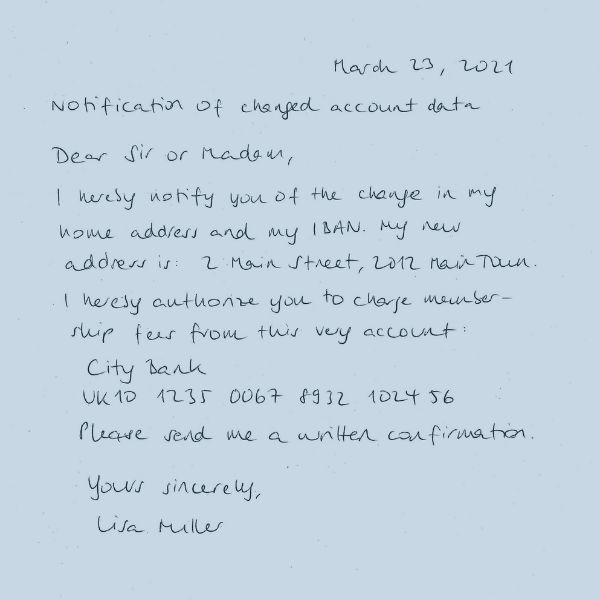 March 23, 2021
Notification of changed account data
Dear Sir or Madam,
I hereby notify you of the change in my
home address and my IBAN. My new
address is: 2 Main Street, 2012 Main Town.
I hereby authorize you to charge member-
ship fees from this very account:
City Bank
UK10 1235 0067 8932 1024 56
Please send me a written confirmation.
Yours sincerely,
Lisa Miller